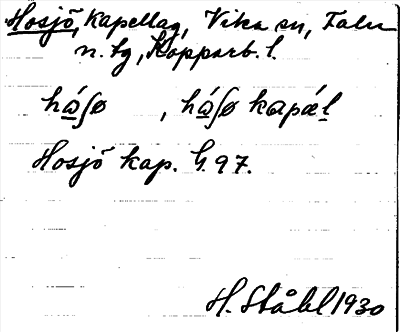 Hosjö, Kapellag, Vika sn, Falu
n. tg, Kopparb. l.
hɷ́ʃø, hɷ́ʃø kapäl
Hosjö kap. G. 97.
H. Ståhl 1930